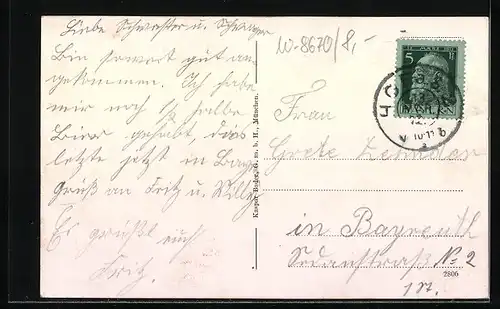 Liebe Schwester u. Schwager
Bin soweit gut an-
gekommen. Ich habe
mir noch 1/2 halbe
Bier gekauft, dies
letzte jetzt in Bayr.
Gruß an Fritz u. Willy
Es grüßt euch
Fritz.
W-8670/8,-
5
BAYERN
HOF
10-11
Kaspar Bodek, G. m. b. H., München.
Frau
Grete
in Bayreuth
Sedanstraße No 2
1 St.
2806